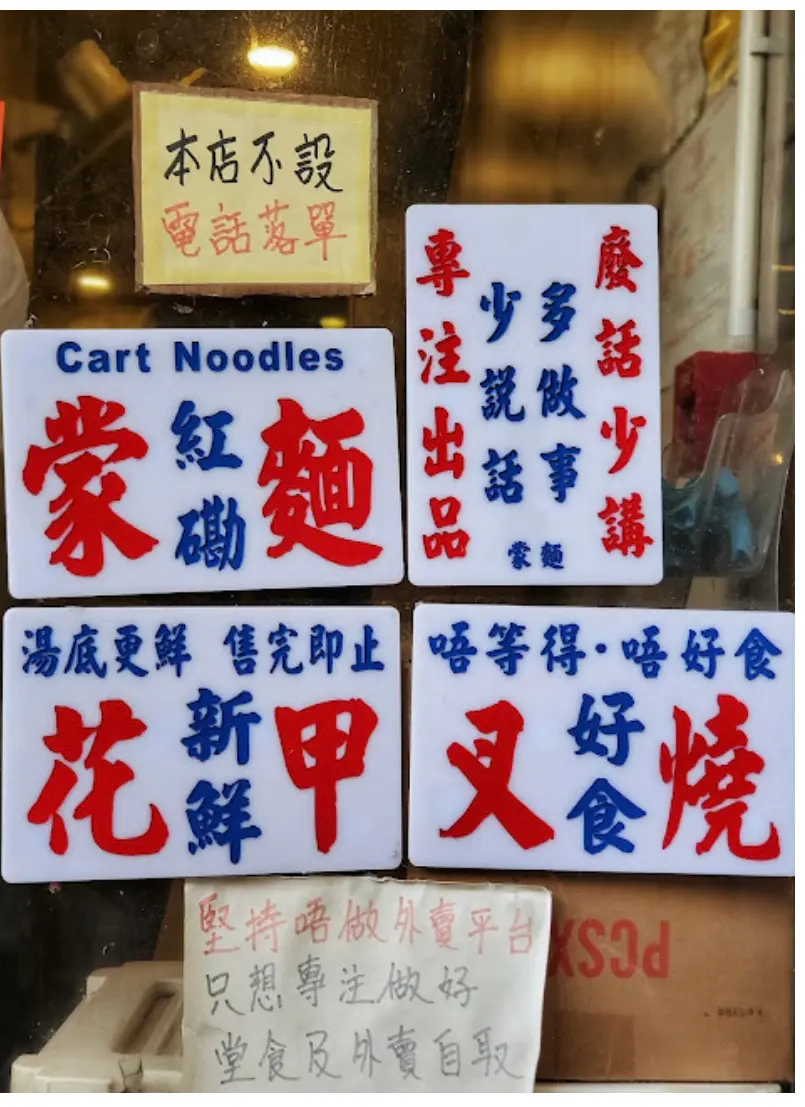 本店不設
電話落單
廢話少講
多做事
少説話
專注出品
蒙麵
Cart Noodles
蒙紅磡麵
湯底更鮮 售完即止
花新鮮甲
唔等得·唔好食
叉好食燒
堅持唔做外賣平台
只想專注做好
堂食及外賣自取
PCSX